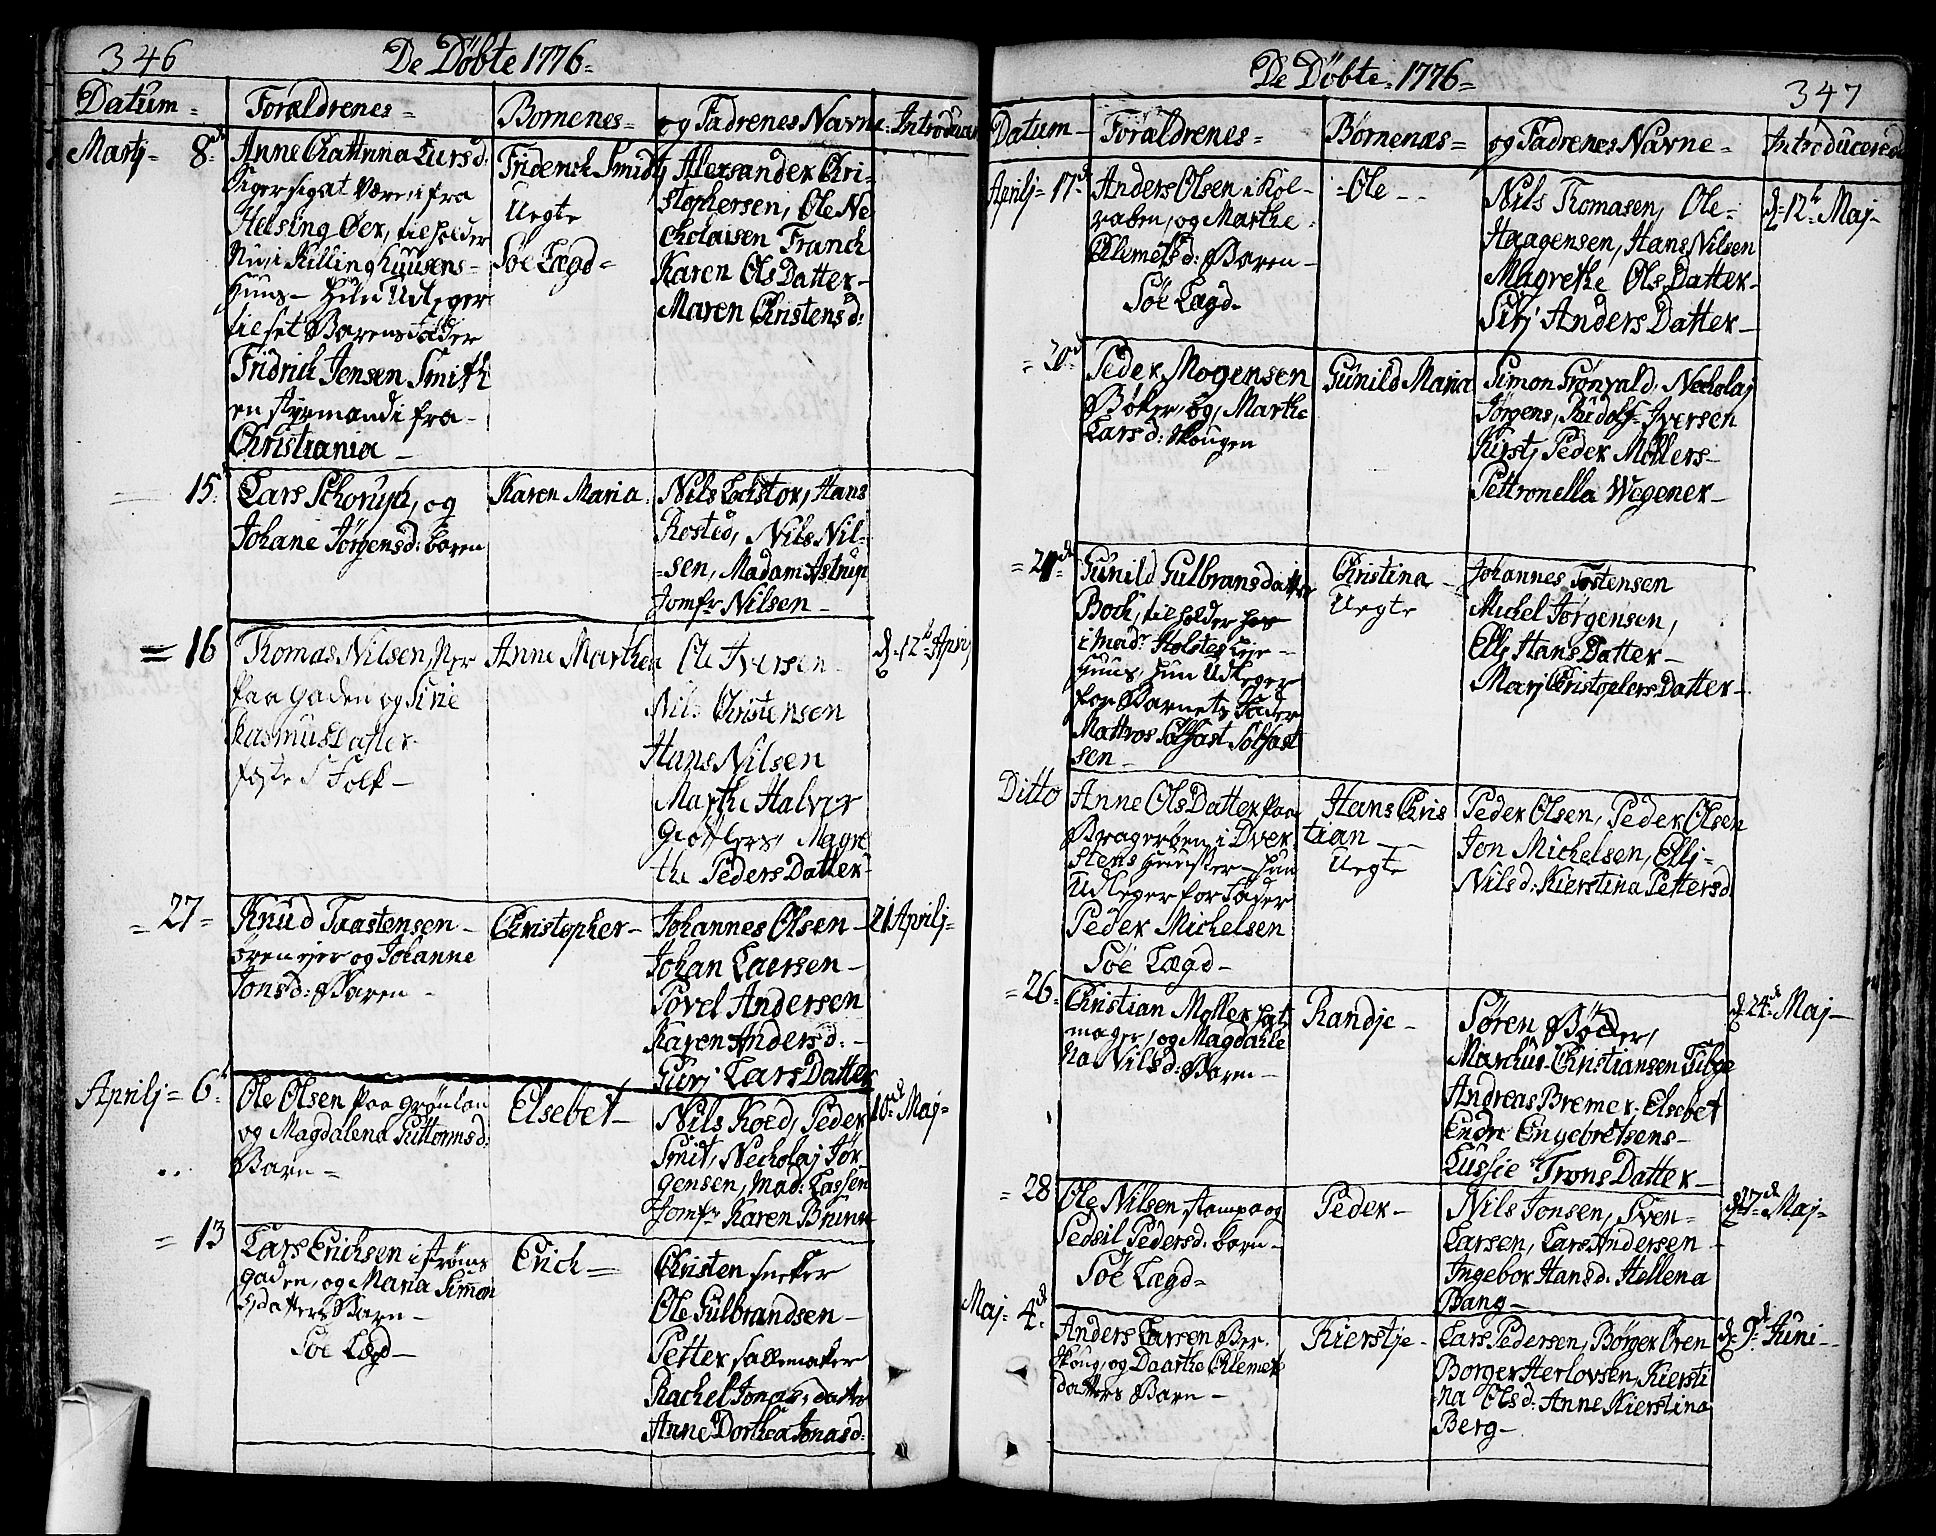 346
De Döbte 1776=
Datum=
Forældrenes=
Bornenes=
og Fadrenes Navne
Martj= 8de
Anne Cattrina Larsd:
Siger sig at være fra
Helsing Øer, til holder
Nu i Killinghuusens=
Huus= hun Udleger
til sit Barens fader
Fridrich Jensen Smith
en styrmand i fra=
Christiania=
Friderich Smidt
Uegte
Söe Lægd=
Alexsander Chri=
stophersen, Ole Ne
cholaisen Franch
Karen Ols Datter=
Maren Christensd:
15
Lars Schorup, og
Johane Jørgensd: baren
Karen Maria
Nils Lochstør, Hans
Rosted, Nils Nil=
=sen, Madam Astrup
Jomfr Nilsen=
= 16
Thomas Nilsen,
paa gaden og Sire
Rasmus Datter
Folk=
Anne Marthea
Ole Iversen
Nils Christensen
Hans Nilsen
Marthe Halvor
Giøtlers, Magre
the Peders Datter
d. 12t Aprij
= 27=
Knud Traastensen=
og Johanne
Jonsd: Baren=
Christopher=
Johannes Olsen=
Johan Laersen=
Povel Andersen
Karen Andersd:=
Gurj Lars Datter
21 Aprilj=
Aprilj= 6t
Ole Olsen paa Grønlan
og Magdalena Guttormsd:
Barn=
Elsebet=
Nils Koed, Peder
Smit, Necholaj Jør
gensen, Mad: Lassen
Jomfr Karen Brunn
10de Maj=
= 13
Lars Erichsen i strøms
gaden, og Maria Simon
datters Barn=
Søe Lægd=
Erich=
Christen sneker
Ole Gulbrandsen=
Petter sallemaker
Rachel Jonas datter
Anne Dorthea Jonasd:
De Döbte 1776=
347
Datum=
Forældrenes=
Børnenæs=
og Fadrenes Navne=
Introducerede
Aprilj= 17d
Anders Olsen i Kol=
raaben, og Marthe
Clemetsd: Baren=
Söe Lægd=
=Ole=
Nils Thomasen, Ole=
Haagensen, Hans Nilsen
Magrethe Ols Datter=
Sirj Anders Datter=
d=12t Maj=
= 20d
Peder Mogensen
Bøker, og Marthe
Larsd: skougen
Gunild Maria
Simon Grønvald, Necholaj
Jørgens, Rudolf= Iversen
Kirstj Peder Möllers=
Pettronella Wegener=
=
Gunild Gulbransdatter
Bock, til holder hos
i Madr Holstes leje=
huus, hun Udleger
for Barnets fader
Mattros Solfast Solfast
sen=
Christina=
Uegte
Johannes Tostensen
Michel Jørgensen,
Elli Hans Datter=
Marj Christophers Datter=
Ditto
Anne Ols Datter paa
Bragerøen i Dver
stens huuset hun
Udleger for fader
Peder Michelsen
Söe Lægd=
Hans Chris
tian=
Uegte
Peder Olsen, Peder Olsen
Jon Michelsen, Ellj=
Nilsd: Kierstina Pettersd
= 26=
Christian Moller hat
mager, og Magdale
na Nilsd: Baren=
Randje=
Søren Bøder,
Marchus Christiansen Tilge
Andreas Bremer, Elsebet
Endre Engebretsens=
Lussie Trons Datter=
d=24de Maj=
= 28
Ole Nilsen stampa og
Sedsil Pedersd: barn=
Söe Lægd=
Peder=
Nils Jonsen, Sven=
Larsen, Lars Andersen
Ingebor Hansd: Hellena
Bang=
d27de Maj=
Maj= 4de
Anders Larsen Ber
skoug, og Daarthe Clemet
datters Barn=
Kierstje=
Lars Pedersen, Børger Ören
Borger Herlovsen, Kiersti
na Olsd: Anne Kierstina
Berg=
d. 9de Juni=